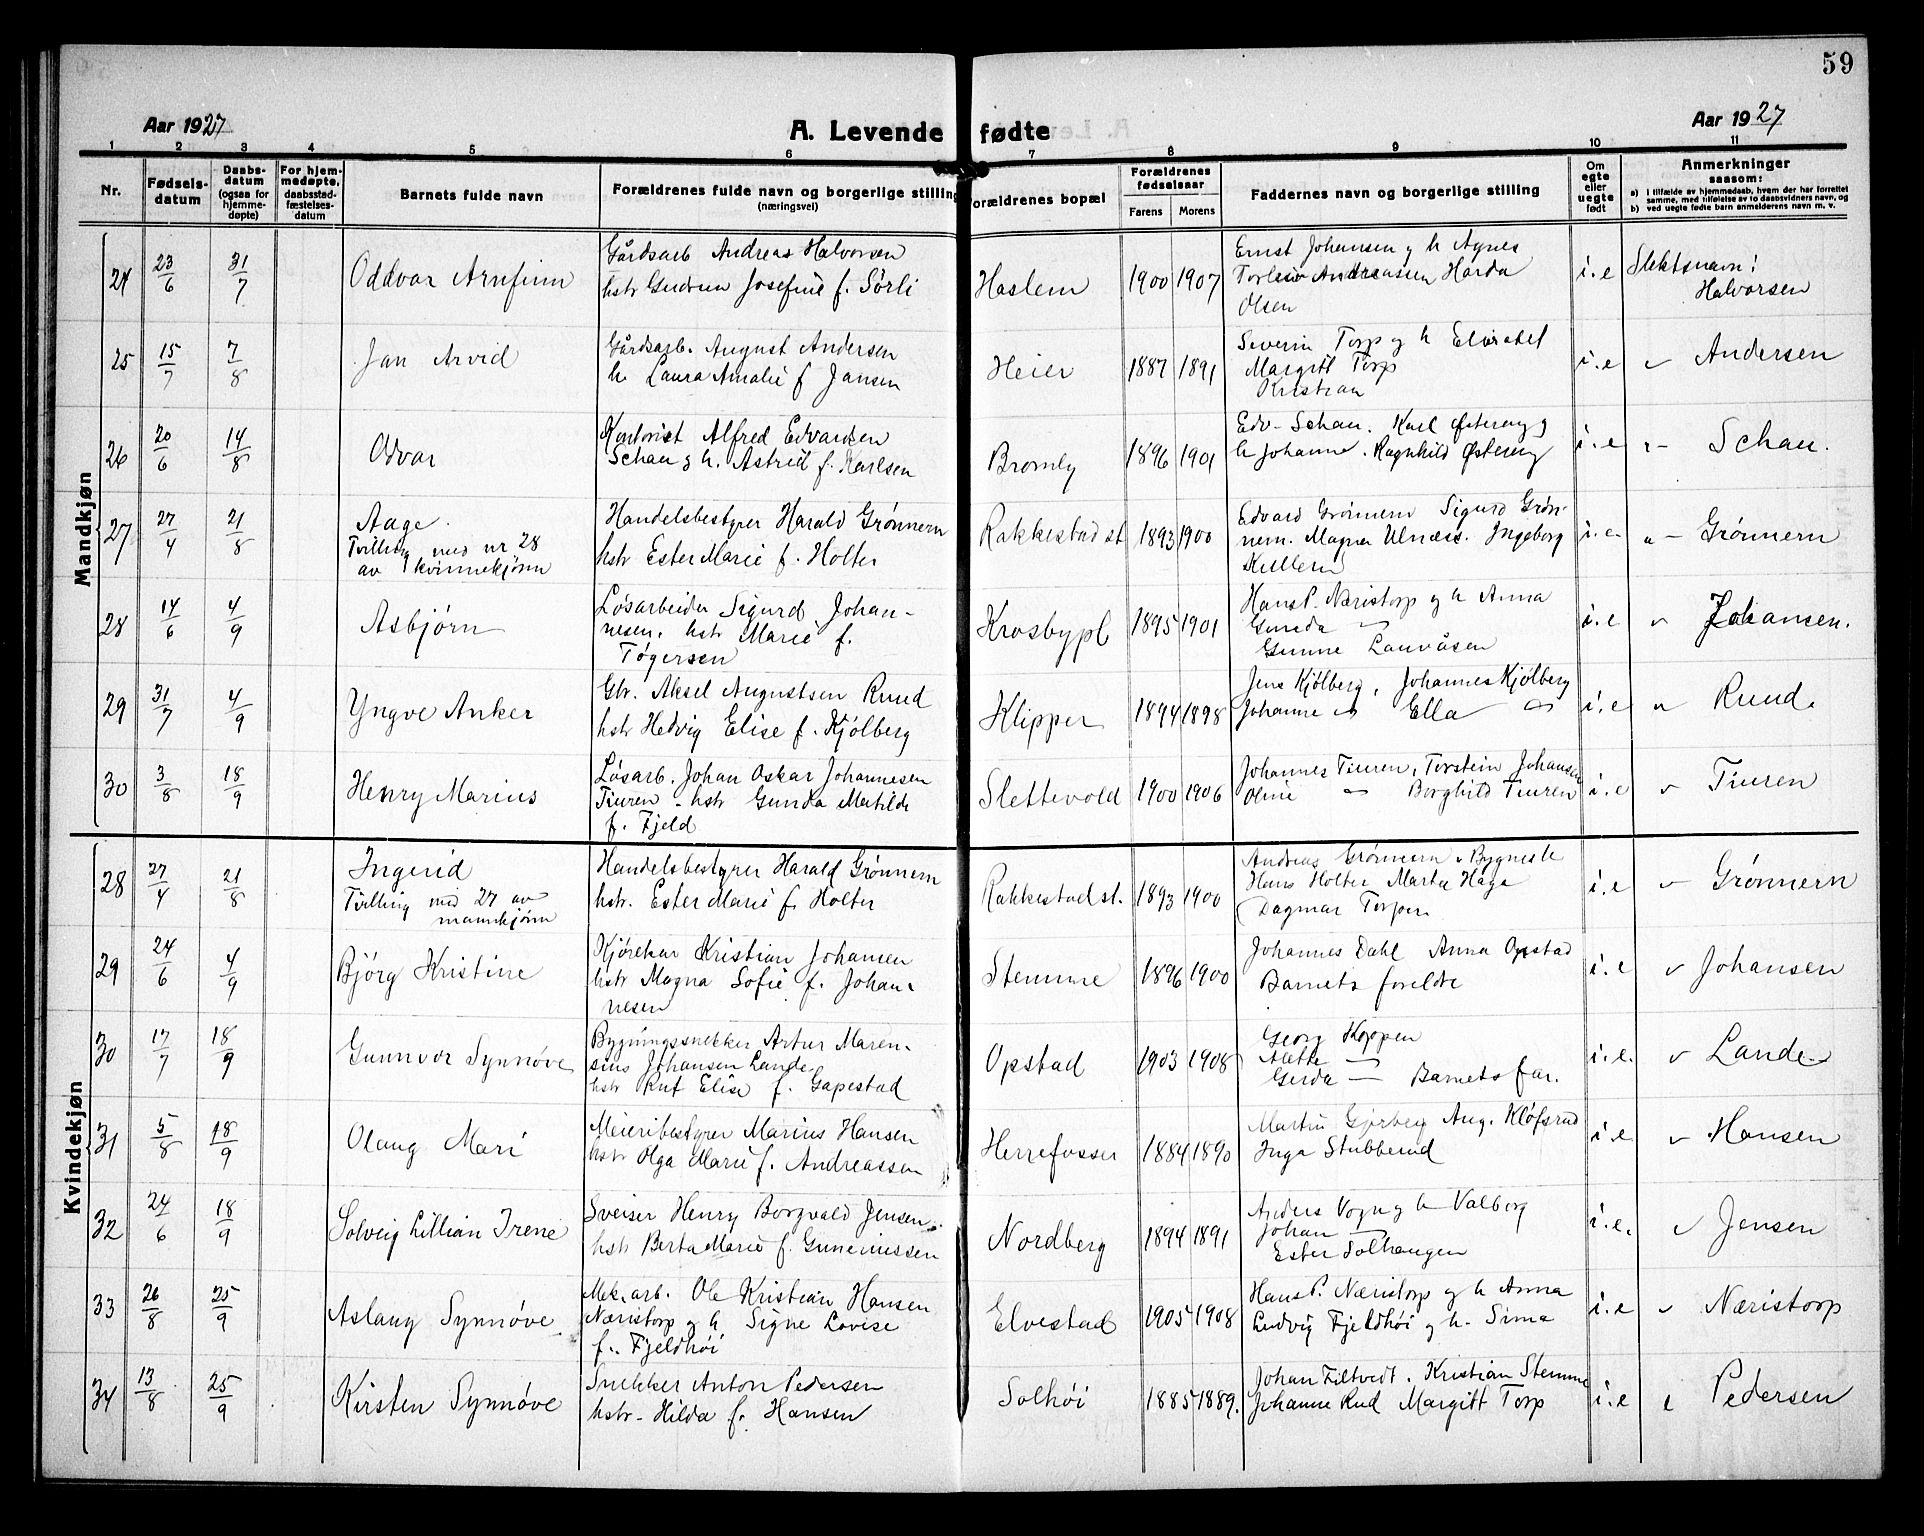 59
Aar 1927
A. Levende fødte
Aar 1927
1 2 3 4 5 6 7 8 9 10 11
Nr.
Fødsels-
datum
Daabs-
datum
(ogsaa for
hjemme-
døpte)
For hjem-
medøpte,
daabsstad-
fæstelses-
datum
Barnets fulde navn
Forældrenes fulde navn og borgerlige stilling
(næringsvei)
Forældrenes bopæl
Forældrenes
fødselsaar
Farens Morens
Faddernes navn og borgerlige stilling
Om
egte
eller
uegte
født
Anmerkninger
saasom:
a) I tilfælde av hjemmedaab, hvem der har forrettet
samme, med tilføielse av to daabsvidners navn, og
b) ved uegte fødte barn anmelderens navn m. v.
Mandkjøn
24 23/6 31/7 Oddvar Arnfinn
Gårdsarb Andreas Halvorsen
hstr Gudrun Josefine f. Sørli
Haslem 1900 1907
Ernst Johansen g h Agnes
Torleiv Andreassen Harda
Olsen
i.e Slektsnavn:
Halvorsen
25 15/7 7/8 Jan Arvid
Gårdsarb. August Andersen
h. Laura Amalie f Jansen
Heier 1887 1891
Severin Torp g h
Margitt Torp
Kristian
i.e " Andersen
26 20/6 14/8 Odvar
Kontorist Alfred Edvardsen
Schau g h. Astrid f. Karlsen
Bromby 1896 1901
Edv. Schau. Karl Østereng g
h Johanne. Ragnhild Østereng
i.e " Schau.
27 27/4 21/8 Aage.
Tvilling med nr 28
av kvinnekjønn
Handelsbestyrer Harald Grønnern
hstr Ester Marie f. Holter
Rakkestad st 1893 1900
Edvard Grønnern Sigurd Grøn-
nern. Magna Ulnæss. Ingeborg
i.e. " Grønnern
28 14/6 4/9 Asbjørn
Løsarbeider Sigurd Johan-
nesen. hstr Marie f.
Tøgersen
Krosbypl 1895 1901
Hans P. Næristorp g h Anna
Gunda "
Gunne Lauvåsen
i.e " Johansen.
29 31/7 4/9 Yngve Anker
Gbr. Aksel Augustsen Ruud
hstr Hedvig Elise f. Kjølberg
Klipper 1894 1898
Jens Kjølberg, Johannes Kjølberg
Johanne " Ella "
i.e " Ruud.
30 3/8 18/9 Henry Marius
Løsarb. Johan Oskar Johannesen
Tiuren - hstr Gunda Matilde
f. Fjeld
Slettevold 1900 1906
Johannes Tiuren, Torstein Johansen
Oline " Borghild Tiuren
i.e " Tiuren
Kvindekjøn
28 27/4 21/8 Ingerid
Tvilling med 27 av
mannkjønn
Handelsbestyrer Harald Grønnern
hstr. Ester Marie f. Holter
Rakkestad st. 1893 1900
Andreas Grønnern
Hans Holter Marta Haga
Dagmar Torper
i.e " Grønnern
29 24/6 4/9 Bjørg Kristine
Kjørekar Kristian Johansen
hstr Magna Sofie f. Johan-
nesen
Stemme 1896 1900
Johannes Dahl Anna Opstad
Barnets foreldre
i.e " Johansen
30 17/7 18/9 Gunnvor Synnøve
Bygningssnekker Artur Maren-
sius Johansen Lande.
hstr Rut Elise f. Gapestad
Opstad 1903 1908
Georg Koppen
Alette "
Gerda — Barnets far.
i.e. " Lande
31 5/8 18/9 Olaug Mari
Meieribestyrer Marius Hansen
hstr Olga Marie f. Andreassen
Herrefosser 1884 1890
Martin Aug. Kløfsrud
Inga Stubberud
i.e " Hansen
32 24/6 18/9 Solveig Lillian Irene
Sveiser Henry Borgvald Jensen.
hstr Berta Marie f. Guneriussen
Nordberg 1894 1891
Anders Vogn g h Valborg
Johan —
Ester Solhaugen
i.e. " Jensen
33 26/8 25/9 Aslaug Synnøve
Mek. arb. Ole Kristian Hansen
Næristorp g h Signe Lovise
f. Fjeldhøi
Elvestad 1905 1908
Hans P. Næristorp g h Anna
Ludvig Fjeldhøi g h. Sina
i.e " Næristorp
34 13/8 25/9 Kirsten Synnøve
Snekker Anton Pedersen
hstr. Hilda f. Hansen
Solhøi 1885 1889.
Johan Filtvedt. Kristian Stemme
Johanne Rud Margitt Torp
i.e " Pedersen